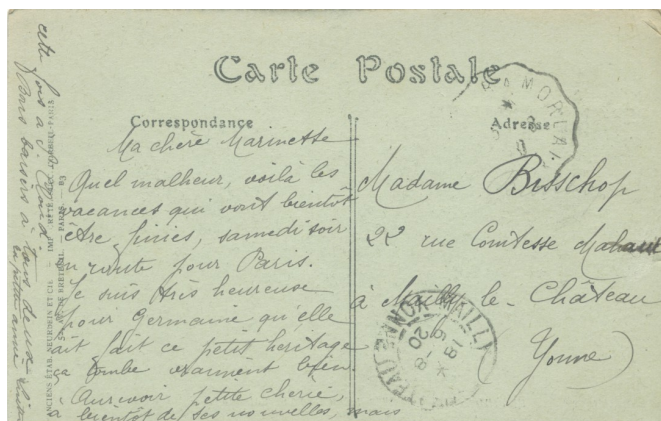 Carte Postale
Correspondance
Adresse
Ma chère Marinette
Quel malheur, voilà les
vacances qui vont bientôt
être finies, samedi soir
en route pour Paris.
Je suis très heureuse
pour Germaine qu'elle
ait fait ce petit heritage
ça tombe vraiment bien.
Aurevoir petite cherie,
à bientôt de tes nouvelles, mais
cette fois à St Cloud.
Bons baisers à tous deux
Madame Bisschop
22 rue Comtesse Mahaut
à Mailly-le-Château
(Yonne)
ANCIENS ETAB. NEURDEIN ET CIE
PARIS
MAILLY
YONNE
18
20